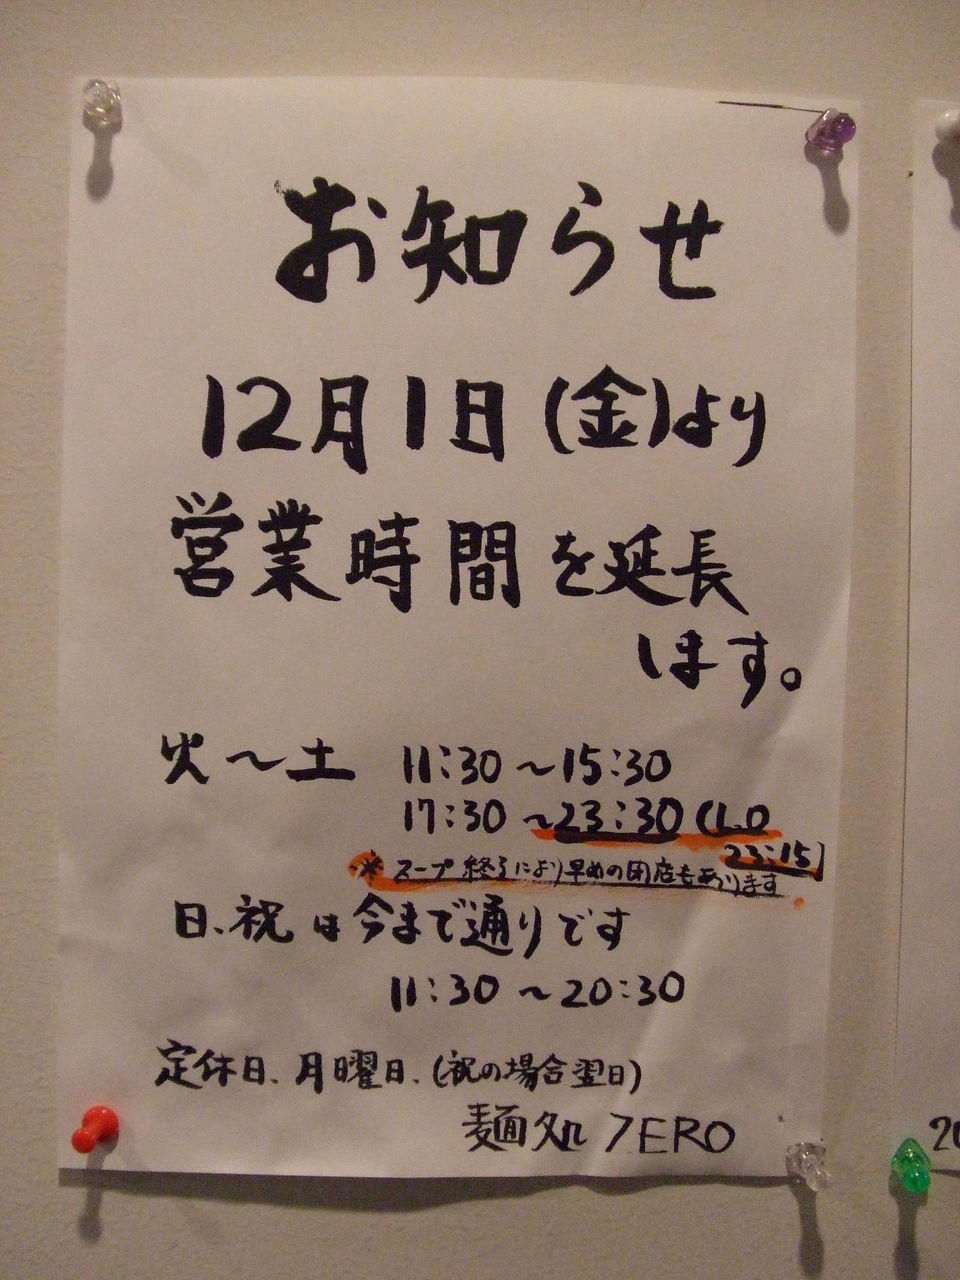 お知らせ
12月1日(金)より
営業時間を延長
します。
火〜土 11:30〜15:30
17:30〜23:30(L.O
23:15)
※スープ終了により早めの閉店もあります
日、祝は今まで通りです
11:30〜20:30
定休日、月曜日、(祝の場合翌日)
麺処 ZERO
20